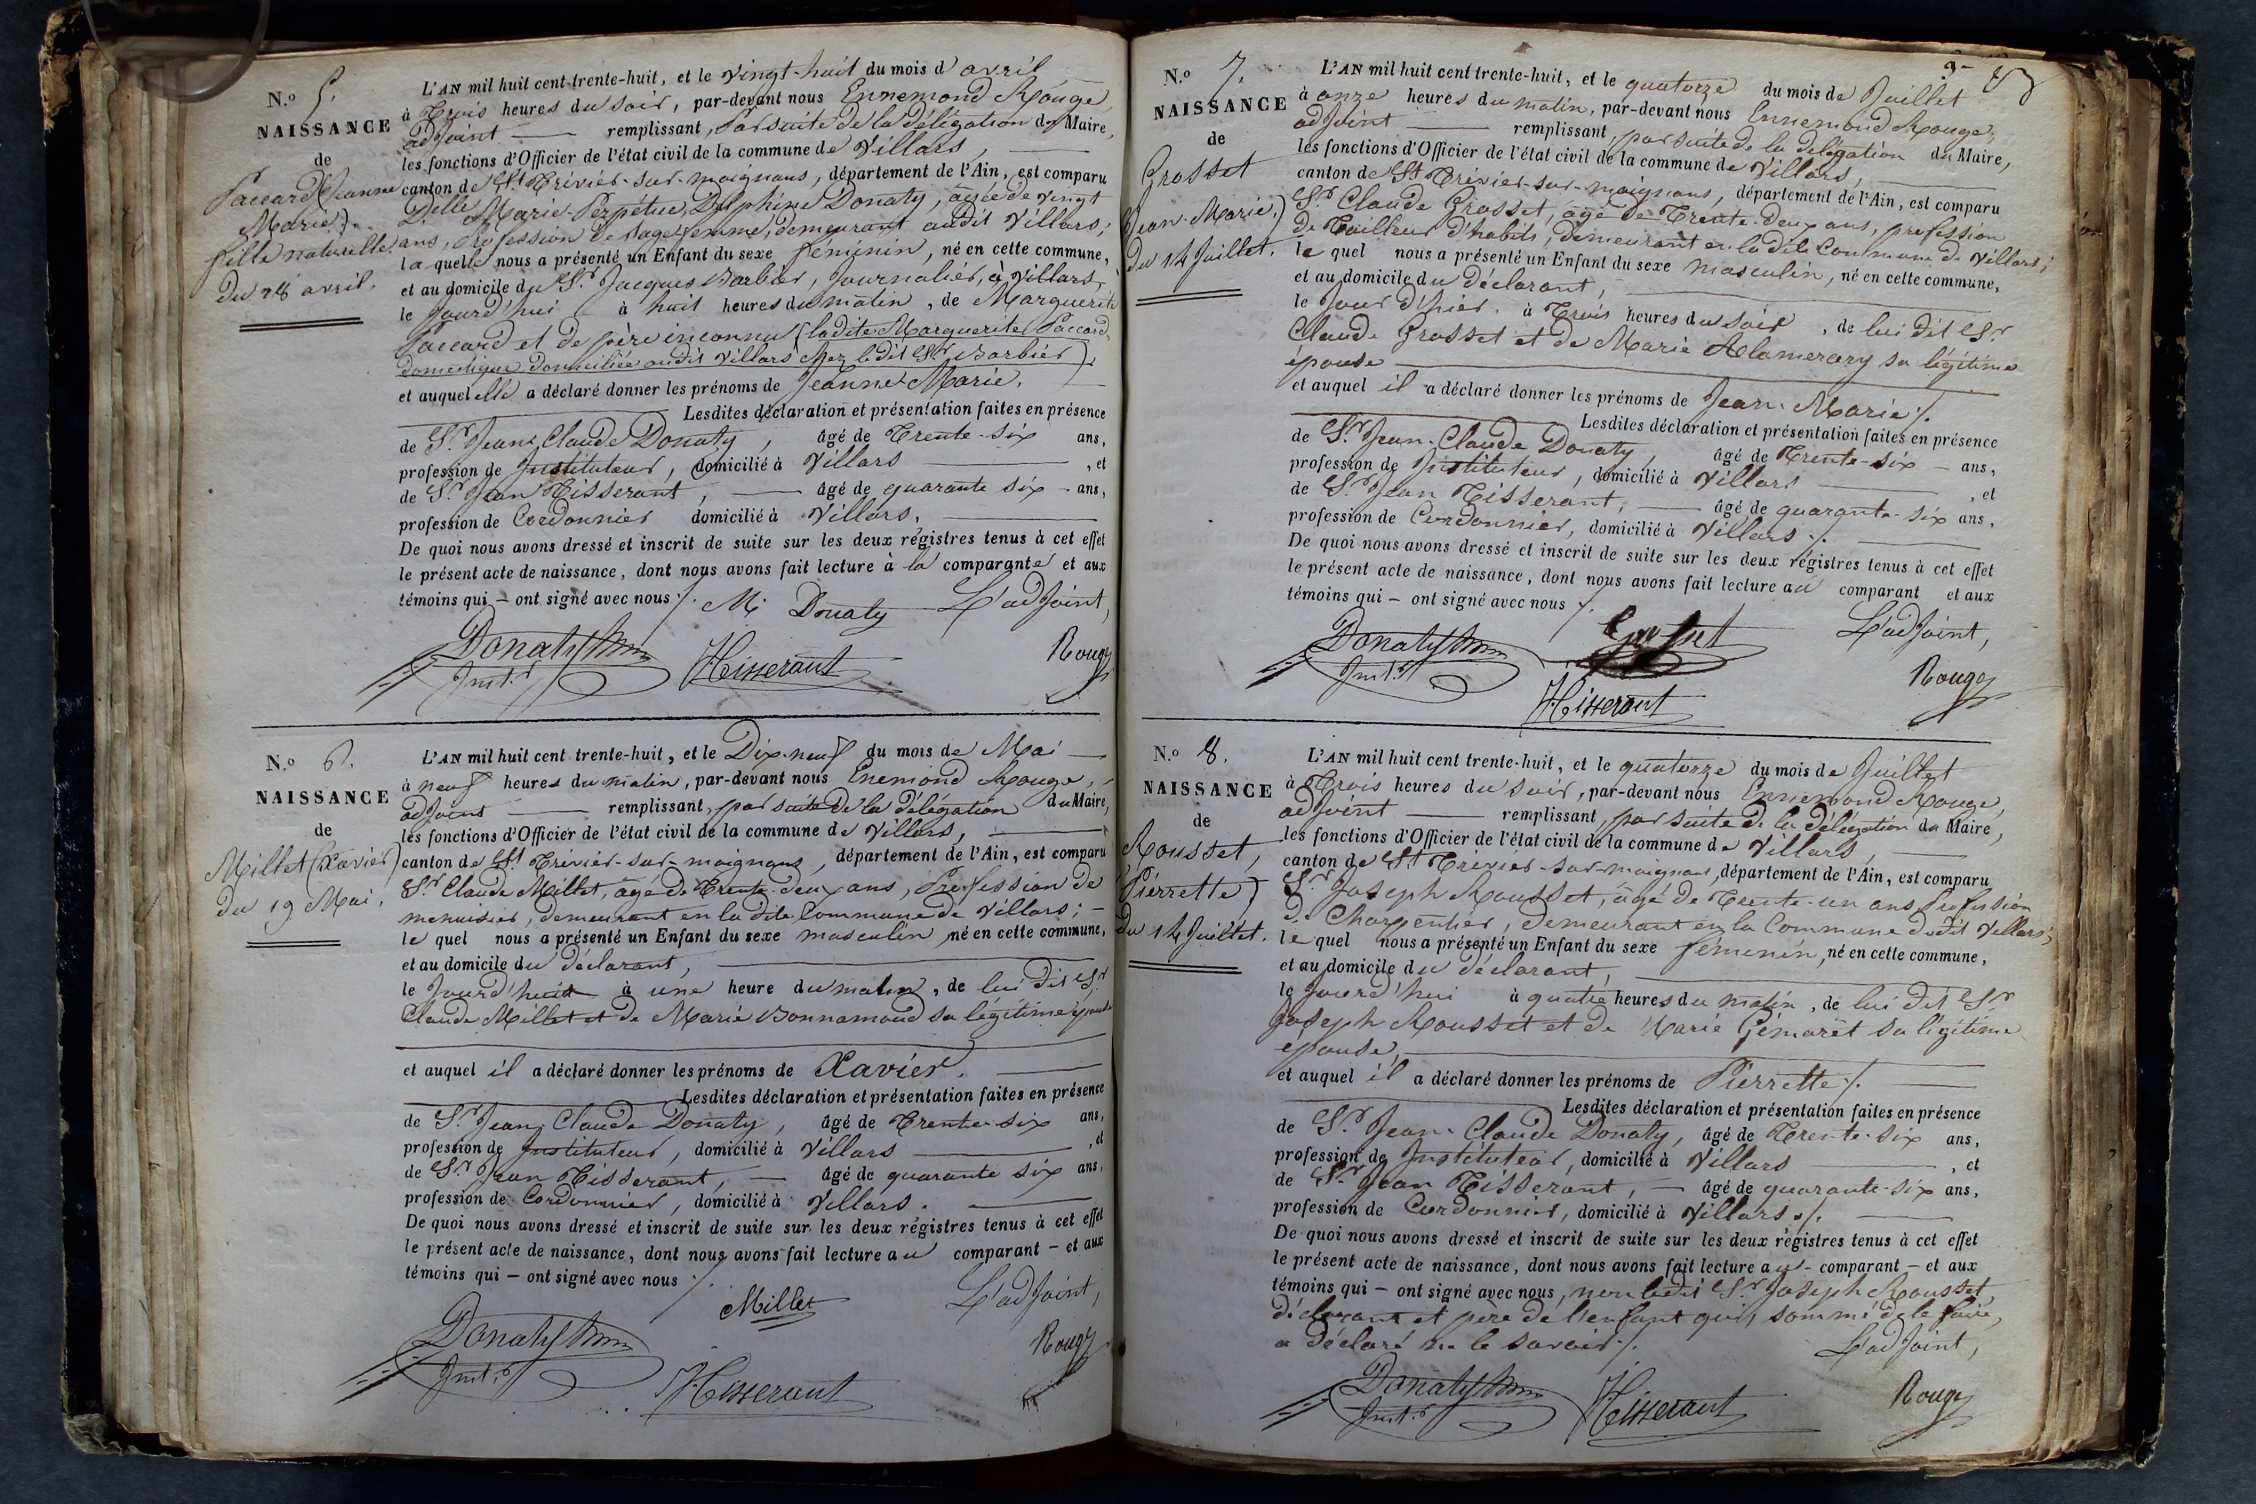 N.º 5.
NAISSANCE
de
Paccard (Jeanne
Marie)
fille naturelle.
du 28 avril.
L'AN mil huit cent trente-huit, et le vingt-huit du mois d'avril
à Trois heures du soir, par-devant nous Ennemond Rouge,
adjoint remplissant, Par suite de la délégation du Maire,
les fonctions d'Officier de l'état civil de la commune de Villars,
canton de St Trivier-sur-moignans, département de l'Ain, est comparu
Delle Marie-Perpétue, Delphine Donaty, âgée de vingt
ans, Profession de sagefemme, demeurant audit Villars;
la quelle nous a présenté un Enfant du sexe féminin, né en cette commune,
et au domicile du Sr Jacques Barbier, Journalier, à Villars,
le Jourd'hui à huit heures du matin, de Marguerite
Paccard et de père inconnu (ladite Marguerite Paccard,
domestique domiciliée audit Villars chez le dit Sr Barbier);
et auquel elle a déclaré donner les prénoms de Jeanne Marie.
Lesdites déclaration et présentation faites en présence
de Sr Jean Claude Donaty, âgé de Trente-six ans,
profession de Instituteur, domicilié à Villars, et
de Sr Jean Tisserant, âgé de quarante six ans,
profession de Cordonnier domicilié à Villars.
De quoi nous avons dressé et inscrit de suite sur les deux régistres tenus à cet effet
le présent acte de naissance, dont nous avons fait lecture à la comparante et aux
témoins qui – ont signé avec nous ./.
M. Donaty L'adjoint,
Donaty
Inst.r
Tisserant
Rouge
N.º 6.
NAISSANCE
de
Millet (Xavier)
du 19 Mai.
L'AN mil huit cent trente-huit, et le Dix-neuf du mois de Mai
à neuf heures du matin, par-devant nous Enemond Rouge,
adjoint remplissant, par suite de la délégation du Maire,
les fonctions d'Officier de l'état civil de la commune de Villars,
canton de St Trivier-sur-moignans, département de l'Ain, est comparu
Sr Claude Millet, âgé de Trente-deux ans, Profession de
menuisier, demeurant en la dite Commune de Villars;
le quel nous a présenté un Enfant du sexe masculin, né en cette commune,
et au domicile du déclarant,
le Jourd'huit à une heure du matin, de lui dit Sr
Claude Millet et de Marie Bonnamoud sa légitime épouse
et auquel il a déclaré donner les prénoms de Xavier.
Lesdites déclaration et présentation faites en présence
de Sr Jean Claude Donaty, âgé de Trente-six ans,
profession de Instituteur, domicilié à Villars, et
de Sr Jean Tisserant, âgé de quarante six ans,
profession de Cordonnier, domicilié à Villars.
De quoi nous avons dressé et inscrit de suite sur les deux régistres tenus à cet effet
le présent acte de naissance, dont nous avons fait lecture au comparant – et aux
témoins qui – ont signé avec nous ./.
Millet L'adjoint,
Donaty
Inst.r
Tisserant
Rouge
N.º 7.
NAISSANCE
de
Grosset
(Jean-Marie.)
du 14 Juillet.
L'AN mil huit cent trente-huit, et le quatorze du mois de Juillet
à onze heures du matin, par-devant nous Ennemond Rouge,
adjoint remplissant, par suite de la délégation du Maire,
les fonctions d'Officier de l'état civil de la commune de Villars,
canton de St Trivier-sur-moignans, département de l'Ain, est comparu
Sr Claude Grosset, âgé de Trente-deux ans, profession
de Tailleur d'habits, demeurant en la dite Commune de Villars;
le quel nous a présenté un Enfant du sexe masculin, né en cette commune,
et au domicile du déclarant,
le Jour d'hier. à Trois heures du soir, de lui dit Sr
Claude Grosset et de Marie Alamercery sa légitime
épouse
et auquel il a déclaré donner les prénoms de Jean-Marie ./.
Lesdites déclaration et présentation faites en présence
de Sr Jean-Claude Donaty, âgé de Trente-six – ans,
profession de Instituteur, domicilié à Villars, et
de Sr Jean Tisserant, âgé de quarante-six ans,
profession de Cordonnier, domicilié à Villars ./.
De quoi nous avons dressé et inscrit de suite sur les deux régistres tenus à cet effet
le présent acte de naissance, dont nous avons fait lecture au comparant et aux
témoins qui – ont signé avec nous ./.
Grosset L'adjoint,
Donaty
Inst.r
Tisserant
Rouge
N.º 8.
NAISSANCE
de
Rousset,
(Pierrette)
du 14 Juillet.
L'AN mil huit cent trente-huit, et le quatorze du mois de Juillet
à Trois heures du soir, par-devant nous Ennemond Rouge,
adjoint remplissant, par suite de la délégation du Maire,
les fonctions d'Officier de l'état civil de la commune de Villars,
canton de St Trivier-sur-moignans, département de l'Ain, est comparu
Sr Joseph Rousset, âgé de Trente-un ans, Profession
de Charpentier, demeurant en la Commune dudit Villars;
le quel nous a présenté un Enfant du sexe féminin, né en cette commune,
et au domicile du déclarant,
le Jourd'hui à quatre heures du matin, de lui dit Sr
Joseph Rousset et de Marie Gémaret sa légitime
épouse,
et auquel il a déclaré donner les prénoms de Pierrette ./.
Lesdites déclaration et présentation faites en présence
de Sr Jean-Claude Donaty, âgé de Trente-six ans,
profession de Instituteur, domicilié à Villars, et
de Sr Jean Tisserant, – âgé de quarante-six ans,
profession de Cordonnier, domicilié à Villars ./.
De quoi nous avons dressé et inscrit de suite sur les deux régistres tenus à cet effet
le présent acte de naissance, dont nous avons fait lecture au – comparant – et aux
témoins qui – ont signé avec nous, non ledit Sr Joseph Rousset,
déclarant et père de l'enfant qui, sommé de le faire,
a déclaré ne le savoir ./. L'adjoint,
Donaty
Inst.r
Tisserant
Rouge